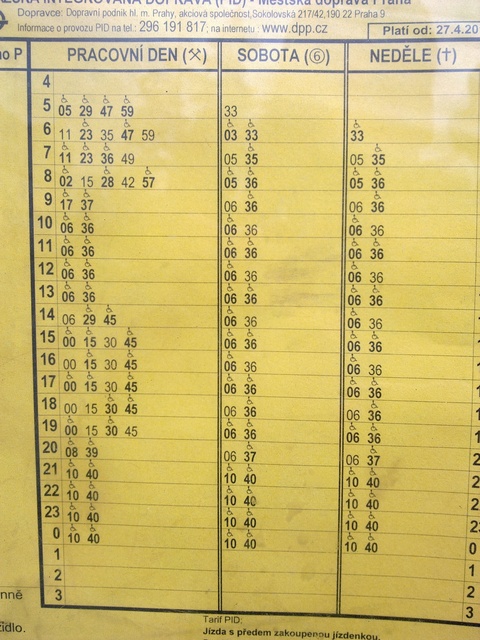 INTEGROVANÁ DOPRAVA (PID) - Městská doprava Praha
Dopravce: Dopravní podnik hl. m. Prahy, akciová společnost, Sokolovská 217/42, 190 22 Praha 9
Informace o provozu PID na tel.: 296 191 817; na internetu: www.dpp.cz
Platí od: 27.4.20
no P PRACOVNÍ DEN (⚒) SOBOTA (⑥) NEDĚLE (✝)
4
5 05 29 47 59 33
6 11 23 35 47 59 03 33 33
7 11 23 36 49 05 35 05 35
8 02 15 28 42 57 05 36 05 36
9 17 37 06 36 06 36
10 06 36 06 36 06 36
11 06 36 06 36 06 36
12 06 36 06 36 06 36
13 06 36 06 36 06 36
14 06 29 45 06 36 06 36
15 00 15 30 45 06 36 06 36
16 00 15 30 45 06 36 06 36
17 00 15 30 45 06 36 06 36
18 00 15 30 45 06 36 06 36
19 00 15 30 45 06 36 06 36
20 08 39 06 37 06 37
21 10 40 10 40 10 40
22 10 40 10 40 10 40
23 10 40 10 40 10 40
0 10 40 10 40 10 40 0
1 1
2 2
3 3
nně
zidlo.
Tarif PID:
Jízda s předem zakoupenou jízdenkou.